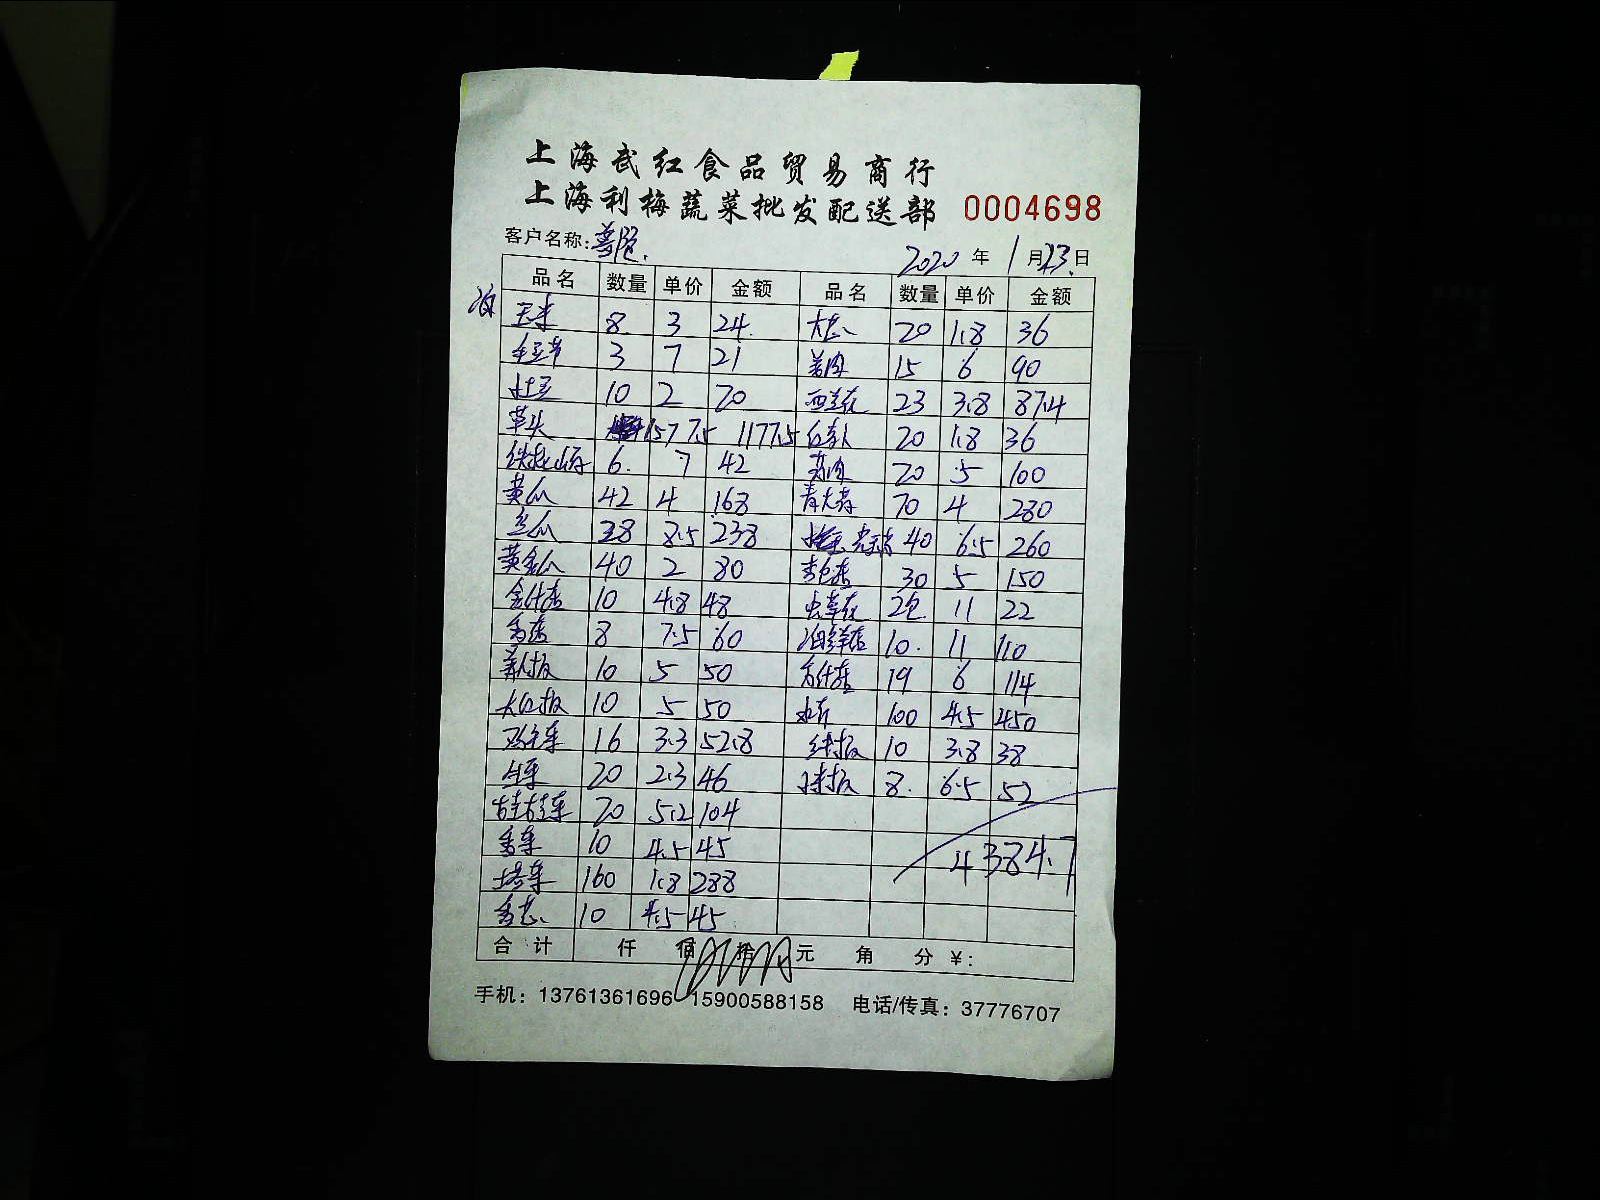 上海武红食品贸易商行
上海利梅蔬菜批发配送部 0004698
客户名称: 2020年1月23日
品名 数量 单价 金额 品名 数量 单价 金额
玉米 8 3 24 大葱 20 1.8 36
3 7 21 姜肉 15 6 90
土豆 10 2 20 西兰花 23 3.8 87.4
草头 157 7.5 1177.5 20 1.8 36
铁棍山药 6 7 42 蒜肉 20 5 100
黄瓜 42 4 168 青大蒜 70 4 280
丝瓜 28 8.5 238 40 6.5 260
黄金瓜 40 2 80 30 5 150
金针菇 10 4.8 48 虫草花 2包 11 22
香菇 8 7.5 60 海鲜菇 10 11 110
10 5 50 19 6 114
大红椒 10 5 50 100 4.5 450
16 3.3 52.8 10 3.8 38
20 2.3 46 8 6.5 52
20 5.2 104
香菜 10 4.5 45 4384.7
塔菜 160 1.8 288
香葱 10 4.5 45
合计 仟 佰 拾 元 角 分 ¥:
手机: 13761361696 15900588158 电话/传真: 37776707